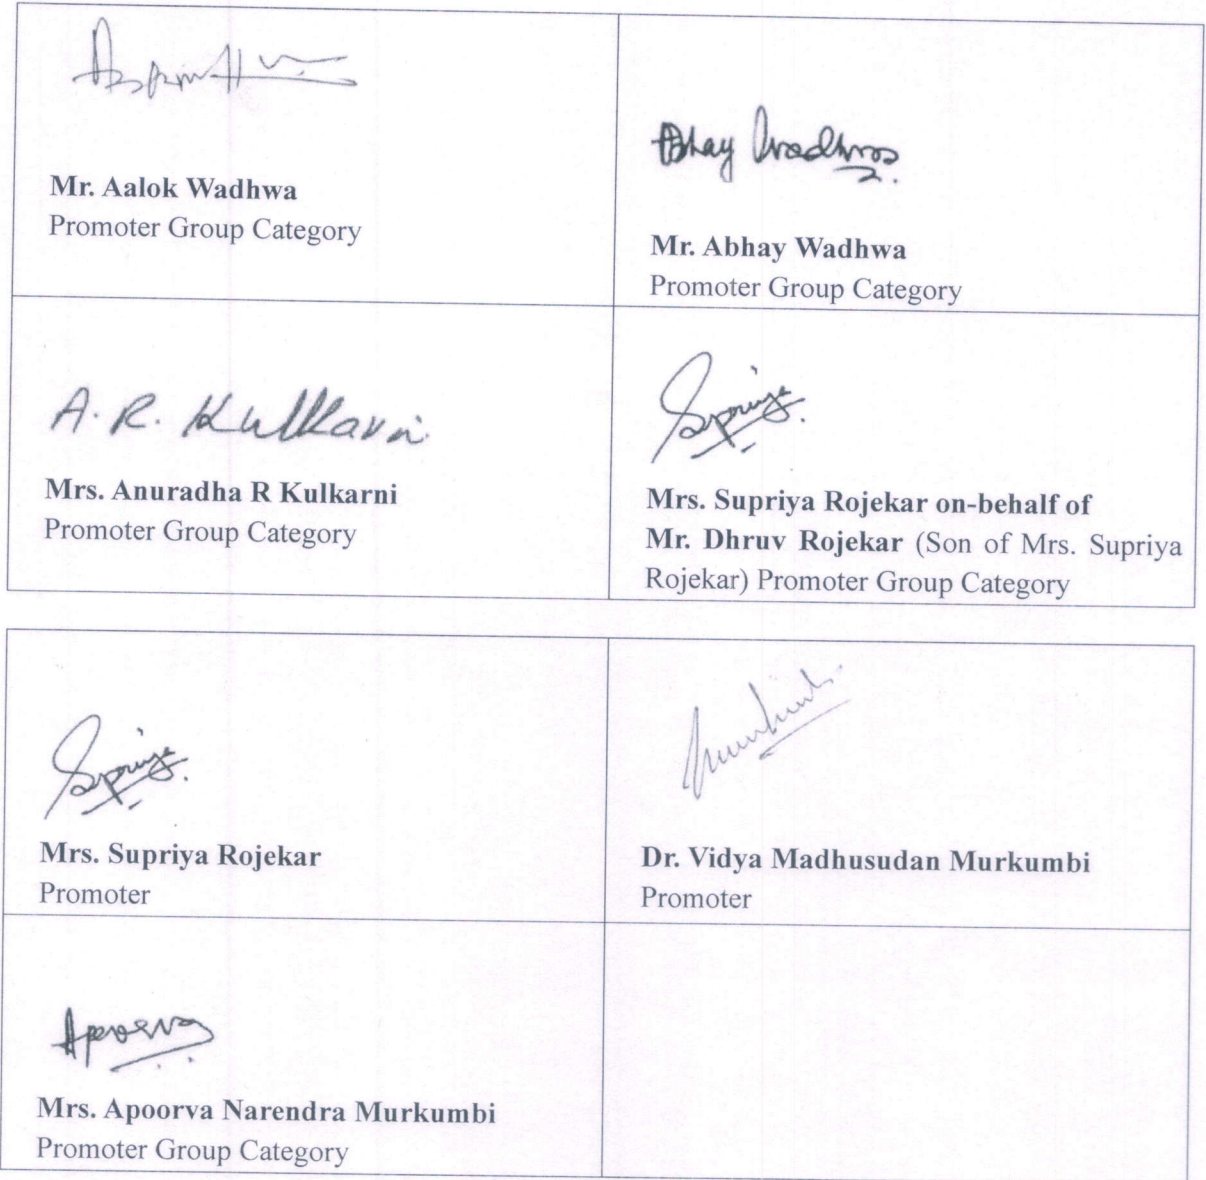 Mr. Aalok Wadhwa
Promoter Group Category
Abhay Wadhwa
Mr. Abhay Wadhwa
Promoter Group Category
A. R. Kulkarni
Mrs. Anuradha R Kulkarni
Promoter Group Category
Supriya
Mrs. Supriya Rojekar on-behalf of
Mr. Dhruv Rojekar (Son of Mrs. Supriya
Rojekar) Promoter Group Category
Supriya
Mrs. Supriya Rojekar
Promoter
Dr. Vidya Madhusudan Murkumbi
Promoter
Apoorva
Mrs. Apoorva Narendra Murkumbi
Promoter Group Category